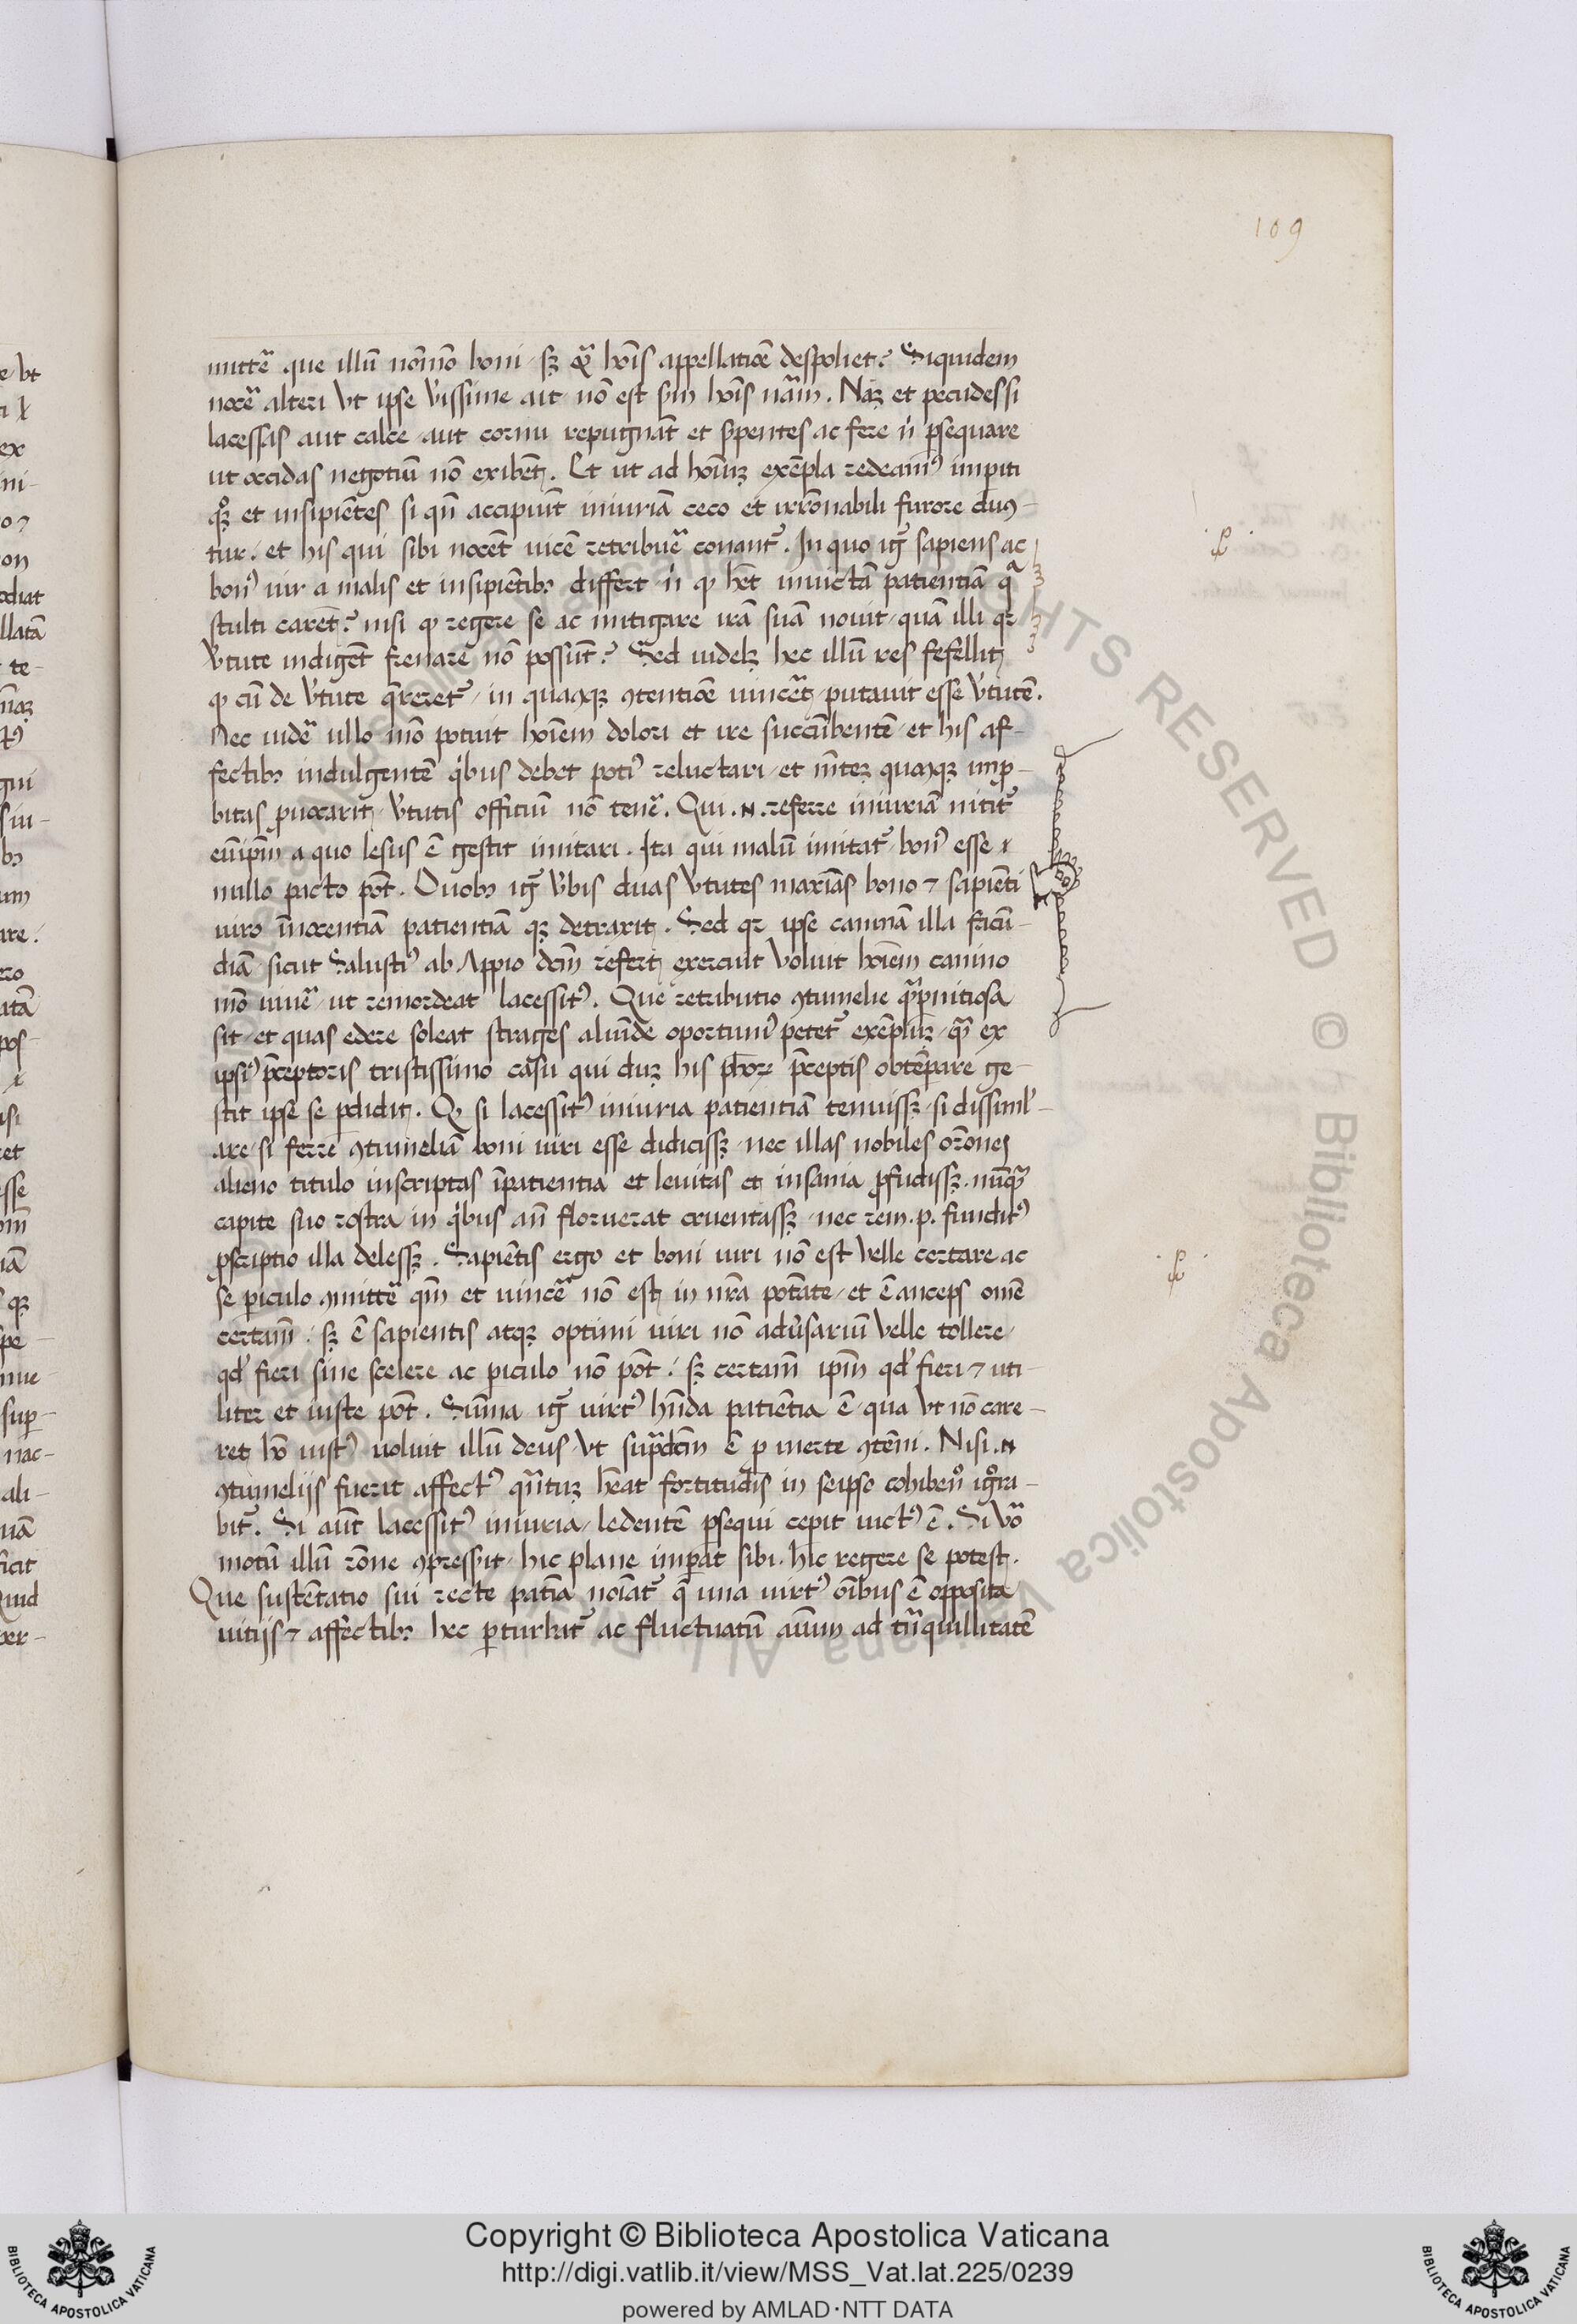 109
mittē que illū nōmō boni sꝫ & hōis appellatiōe despoliet? Siquidem
nocē alteri vt ipse vissime ait nō est sm hōis nām. Naꝫ et pecudes si
lacessas aut calce aut cornu repugnāt et spentes ac fere n psequare
ut occidas negotiū nō exibēt. Et ut ad hoīuꝫ exēpla redeamꝰ impiti
qꝫ et insipiētes si qn accipiūt iniuriā ceco et irrōnabili furore ducū-
tur. et his qui sibi nocēt uicē retribuē conant. In quo ig sapiens ac
bonꝰ uir a malis et insipiētibꝫ differt n ꝙ hēt inuictā patientiā q
stulti carēt? nisi ꝙ regere se ac mitigare irā suā nouit quā illi qꝛ
vtute indigēt frenare nō possūt? Sed uidelꝫ hec illū res fefellit
ꝙ cū de vtute qreret in quacꝫ ꝯtentiōe uincē putauit esse vtutē.
Nec uidē ullo mō potuit hoīem dolori et ire succūbentē et his af-
fectibꝫ indulgentē qbus debet potiꝰ reluctari et rūteꝫ quacꝫ imp-
bitas puocarit vtutis officiū nō tenē. Qui .N. referre iniuriā nitit
eūipm a quo lesus ē gestit imitari. Ita qui malū imitat bonꝰ esse
nullo pacto pōt. Duobꝫ ig vbis duas vtutes maxīas bono ⁊ sapiēti
uiro īnocentiā patientiā qꝫ detraxit. Sed qꝛ ipse caninā illā facū-
diā sicut Salustiꝰ ab Appio dcm refert exercuit voluit hoīem canino
mō uiuē ut remordeat lacessitꝰ. Que retributio ꝯtumelie qpnitiosa
sit et quas edere soleat strages aliūde oportuniꝰ petet exēpluꝫ q ex
ipsiꝰ pceptoris tristissimo casu qui duꝫ his phoꝝ pceptis obtēpare ge-
stit ipse se pdidit. Q si lacessitꝰ iniuria patientiā tenuissꝫ si dissimul-
are si ferre ꝯtumeliā boni uiri esse didicissꝫ nec illas nobiles orōnes
alieno titulo inscriptas īpatientia et leuitas et insania pfudissꝫ. nūq
capite suo rostra in qbus an floruerat cruentassꝫ nec rem.p. funditꝰ
pscriptio illa delessꝫ. Sapiētis ergo et boni uiri nō est velle certare ac
se piculo ꝯmittē qm et uincē nō est in nra potāte et ē anceps omē
certam. sꝫ ē sapientis atqꝫ optimi uiri nō adusariū velle tollere
qd fieri sine scelere ac piculo nō pōt. sꝫ certam ipm qd fieri ⁊ uti-
liter et iuste pōt. Sūma ig uirtꝰ hnda patiētia ē qua vt nō care-
ret hō iustꝰ uoluit illū deus vt supdcm ē p inerte ꝯtēni. Nisi .N
ꝯtumeliis fuerit affectꝰ qntuꝫ hēat fortitudis in seipso cohibēꝰ igra-
bit. Si aut lacessitꝰ iniuria ledentē psequi cepit uictꝰ ē. Si vo
motū illū rōne ꝯpressit hic plane impat sibi. hic regere se potest.
Que sustētatio sui recte patīa noīat q una uirtꝰ oībus ē opposita
uitiis ⁊ affectibꝫ hec pturbat ac fluctuatū aium ad trnquillitatē
Copyright © Biblioteca Apostolica Vaticana
http://digi.vatlib.it/view/MSS_Vat.lat.225/0239
powered by AMLAD·NTT DATA